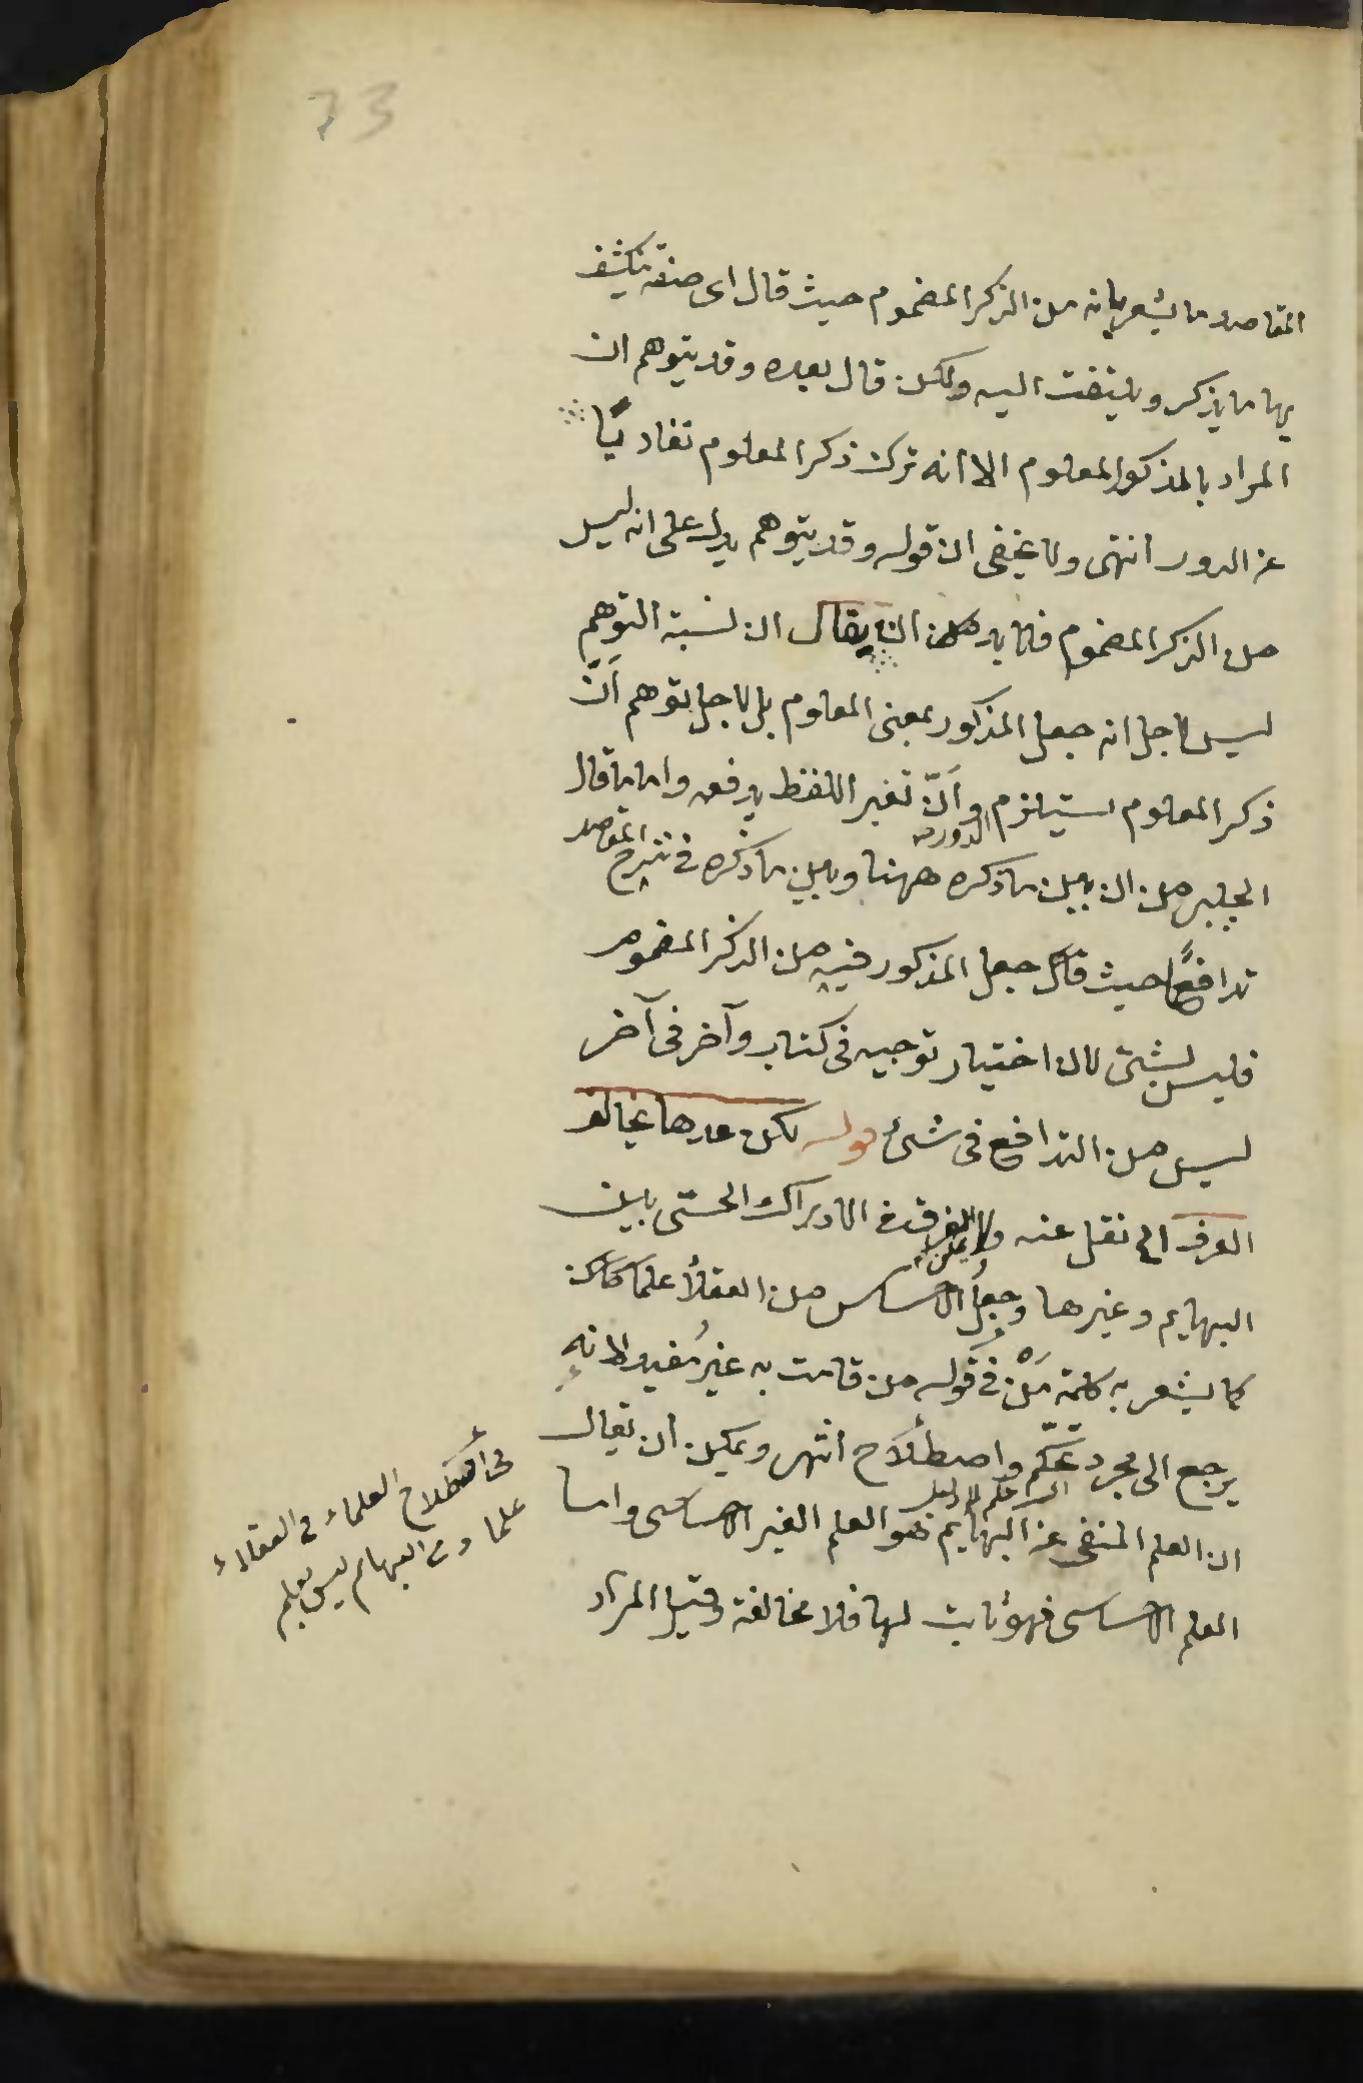 73
المقاصد ما يشعر بانه من الذكر المضموم حيث قال اى صفة ينكشف
بها ما يذكر ويلتفت اليه ولكن قال بعده وقد يتوهم ان
المراد بالمذكور المعلوم الا انه ترك ذكر المعلوم تفاديًا
عن الدور انتهى ولا يخفى ان قوله وقد يتوهم يدل على انه ليس
من الذكر المضموم فلا بد من ان يقال ان نسبة التوهم
ليس لاجل انه جعل المذكور بمعنى المعلوم بل لاجل توهم اَنّ
ذكر المعلوم يستلزم الدور واَنّ تغير اللفظ يدفعه واما ما قال
الجلبى من ان بين ما ذكره ههنا وبين ما ذكره فى شرح المقاصد
تدافعًا حيث قال جعل المذكور فيه من الذكر المضموم
فليس بشئ لان اختيار توجيه فى كتاب وآخر فى آخر
ليس من التدافع فى شئ قوله لكن عدها يخالف
العرف الخ نقل عنه والفرق فى الادراك الحسى بين
البهايم وغيرها وجعل الاحساس من العقلاء علما
كما يشعر به كلمة مَنْ فى قوله من قامت به غير مفيد لانه
يرجع الى مجرد تحكّم واصطلاح انتهى ويمكن ان يقال
ان العلم المنفى عن البهايم هو العلم الغير الاحساسى واما
العلم الاحساسى فهو ثابت لها فلا مخالفة وقيل المراد
فى اصطلاح العلماء فى العقلاء
علما و من البهايم ليس بعلم